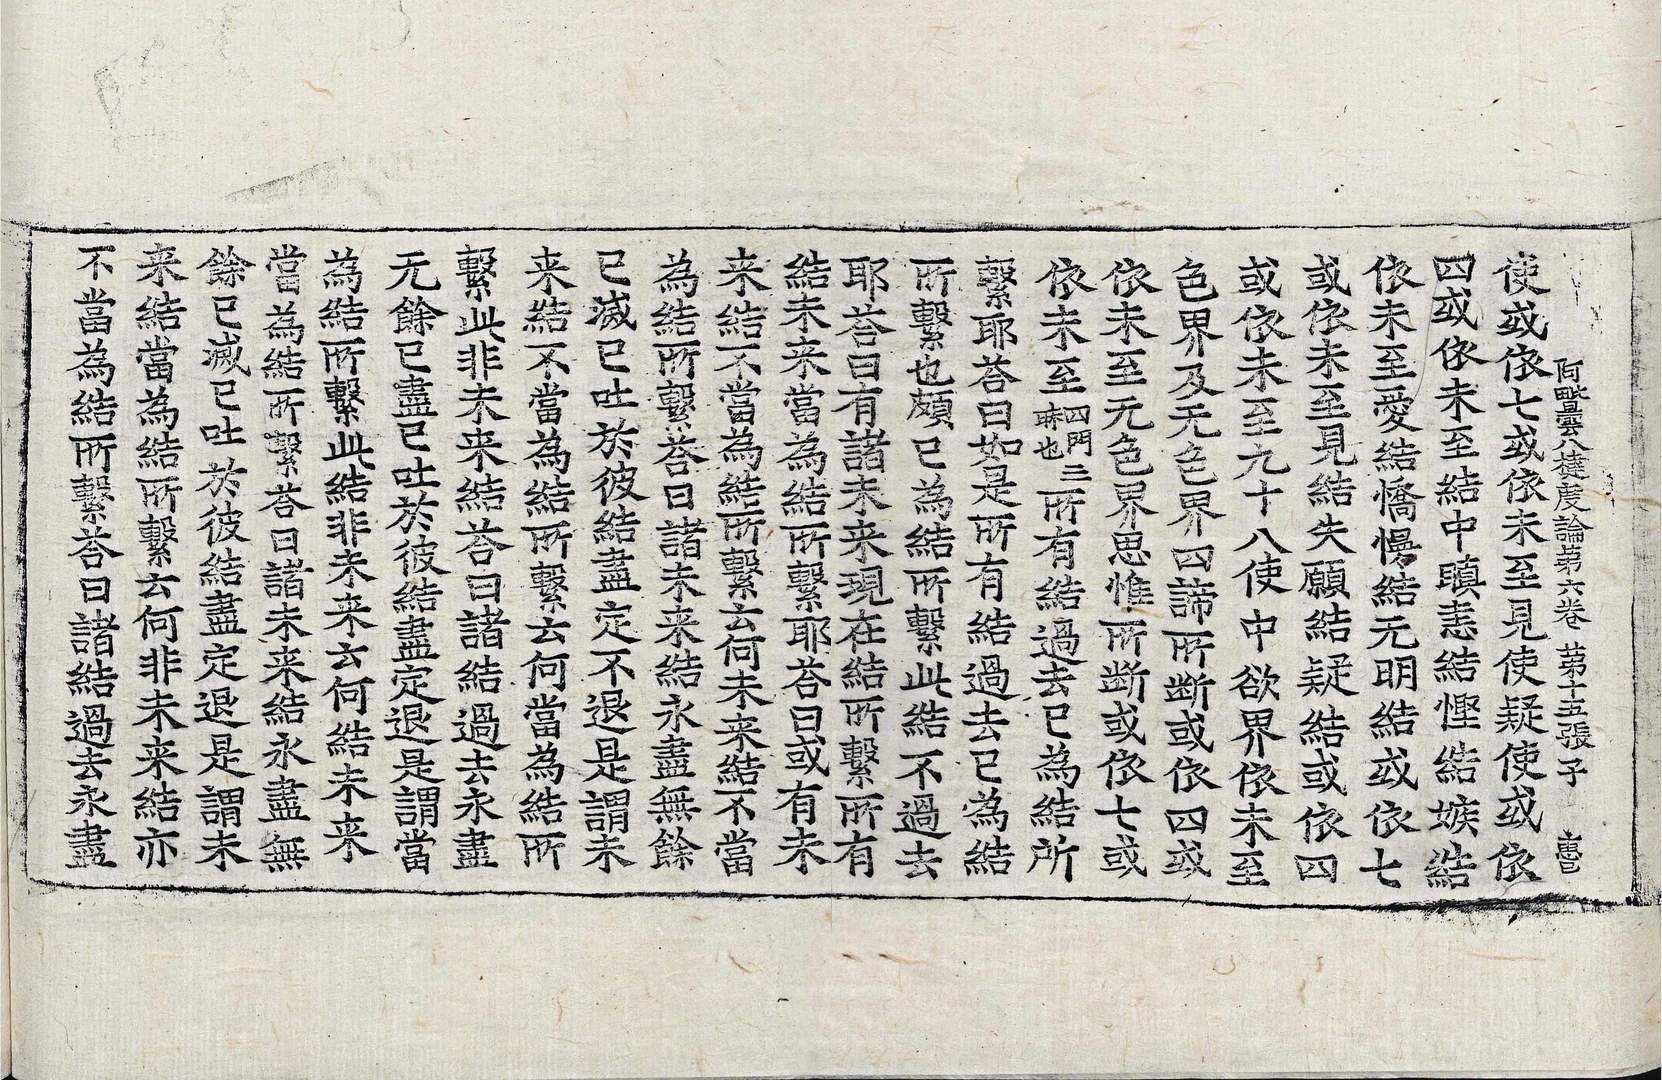 阿毗曇八揵度論第六卷 第十五張 子
使或依七或依未至見使疑使或依
四或依未至結中瞋恚結慳結嫉結
依未至愛結憍慢結无明結或依七
或依未至見結失願結疑結或依四
或依未至九十八使中欲界依未至
色界及无色界四諦所斷或依四或
依未至无色界思惟所斷或依七或
依未至四門三昧也所有結過去已為結所
繫耶荅曰如是所有結過去已為結
所繫也頗已為結所繫此結不過去
耶荅曰有諸未来現在結所繫所有
結未来當為結所繫耶荅曰或有未
来結不當為結所繫云何未来結不當
為結所繫荅曰諸未来結永盡無餘
已滅已吐於彼結盡定不退是謂未
来結不當為結所繫云何當為結所
繫此非未来結荅曰諸結過去永盡
无餘已盡已吐於彼結盡定退是謂當
為結所繫此結非未来云何結未来
當為結所繫荅曰諸未来結永盡無
餘已滅已吐於彼結盡定退是謂未
来結當為結所繫云何非未来結亦
不當為結所繫荅曰諸結過去永盡